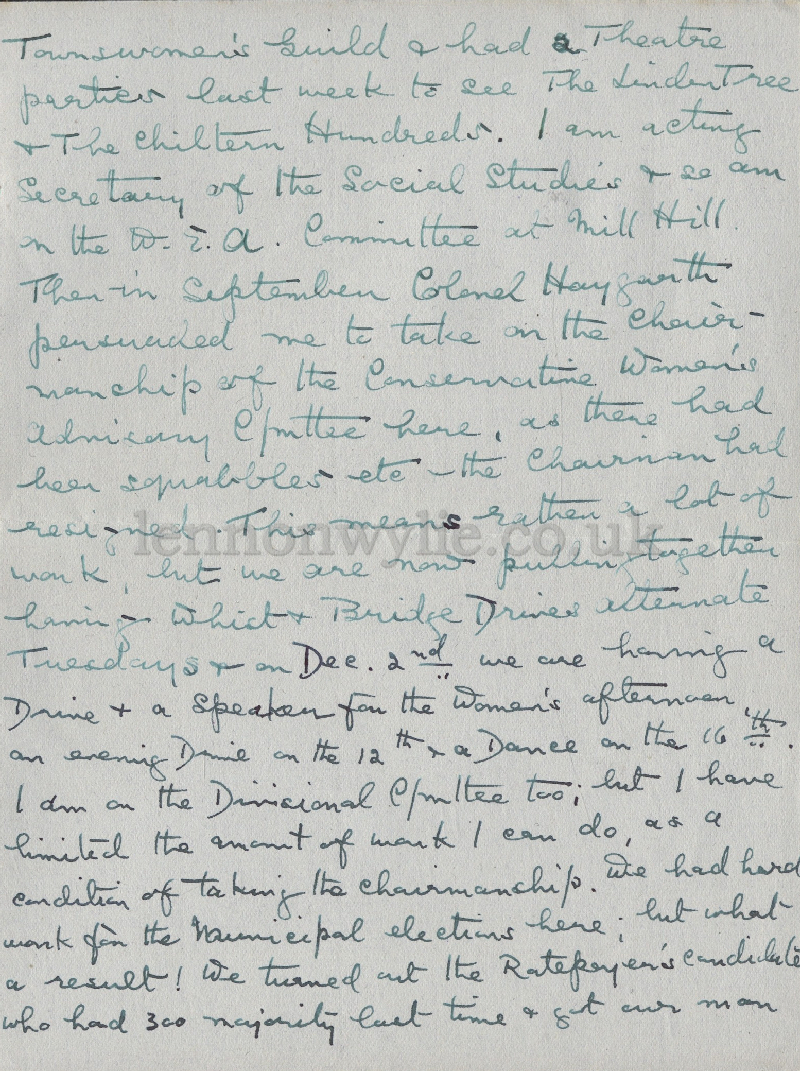 Townswomen's Guild & had a Theatre
parties last week to see The Linden Tree
& The Chiltern Hundreds. I am acting
Secretary of the Social Studies & so am
on the W.E.A. Committee at Mill Hill.
Then in September Colonel Haygarth
persuaded me to take on the Chair-
manship of the Conservative Women's
Advisory C/mttee here, as there had
been squabbles etc - the Chairman had
resigned. This means rather a lot of
work, but we are now pulling together
having Whist & Bridge Drives alternate
Tuesdays & on Dec. 2nd we are having a
Drive & a Speaker for the Women's afternoon,
an evening Drive on the 12th & a Dance on the 16th.
I am on the Divisional C/mttee too; but I have
limited the amount of work I can do, as a
condition of taking the chairmanship. We had hard
work for the Municipal elections here; but what
a result! We turned out the Ratepayer's candidate
who had 300 majority last time & got our man
lennonwylie.co.uk